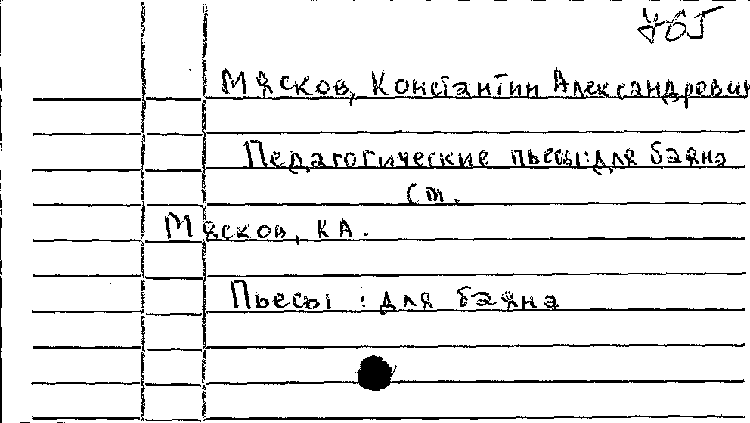 765
Мясков, Константин Александрович
Педагогические пьесы: для баяна
см.
Мясков, К А.
Пьесы : для баяна